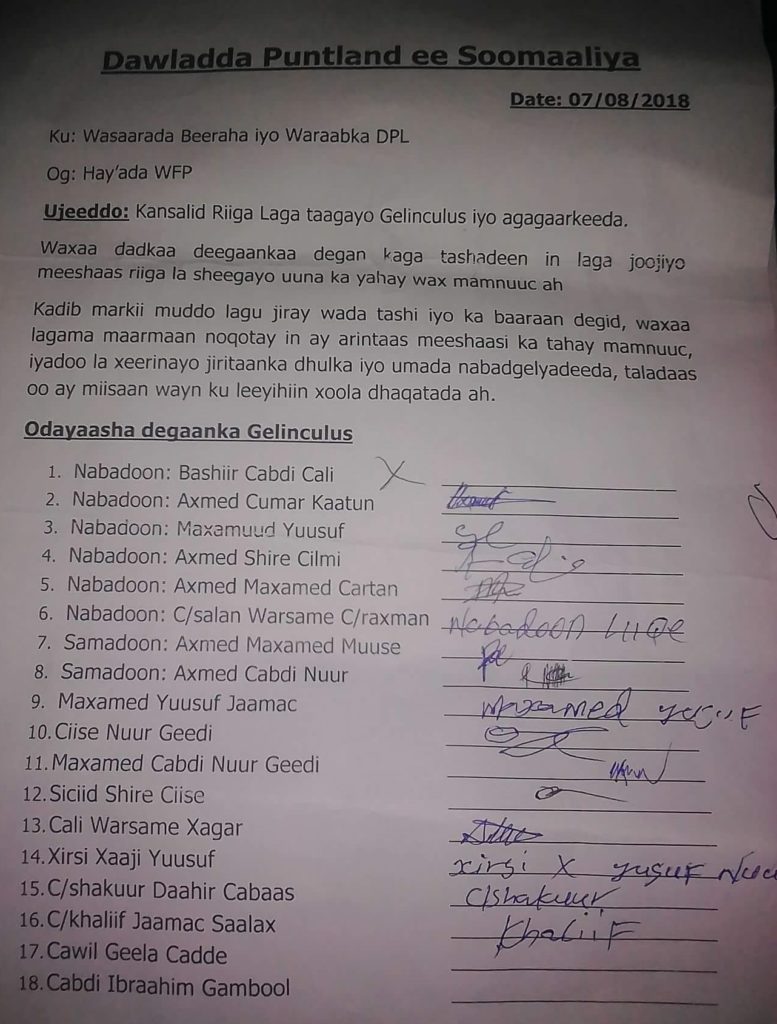 Dawladda Puntland ee Soomaaliya
Date: 07/08/2018
Ku: Wasaarada Beeraha iyo Waraabka DPL
Og: Hay'ada WFP
Ujeeddo: Kansalid Riiga Laga taagayo Gelinculus iyo agagaarkeeda.
Waxaa dadkaa deegaankaa degan kaga tashadeen in laga joojiyo
meeshaas riiga la sheegayo uuna ka yahay wax mamnuuc ah
Kadib markii muddo lagu jiray wada tashi iyo ka baaraan degid, waxaa
lagama maarmaan noqotay in ay arintaas meeshaasi ka tahay mamnuuc,
iyadoo la xeerinayo jiritaanka dhulka iyo umada nabadgelyadeeda, taladaas
oo ay miisaan wayn ku leeyihiin xoola dhaqatada ah.
Odayaasha degaanka Gelinculus
1. Nabadoon: Bashiir Cabdi Cali X
2. Nabadoon: Axmed Cumar Kaatun
3. Nabadoon: Maxamuud Yuusuf
4. Nabadoon: Axmed Shire Cilmi
5. Nabadoon: Axmed Maxamed Cartan
6. Nabadoon: C/salan Warsame C/raxman Nabadoon
7. Samadoon: Axmed Maxamed Muuse
8. Samadoon: Axmed Cabdi Nuur
9. Maxamed Yuusuf Jaamac Maxamed yusuf
10. Ciise Nuur Geedi
11. Maxamed Cabdi Nuur Geedi
12. Siciid Shire Ciise
13. Cali Warsame Xagar
14. Xirsi Xaaji Yuusuf xirsi X yusuf
15. C/shakuur Daahir Cabaas C/shakuur
16. C/khaliif Jaamac Saalax khaliif
17. Cawil Geela Cadde
18. Cabdi Ibraahim Gambool